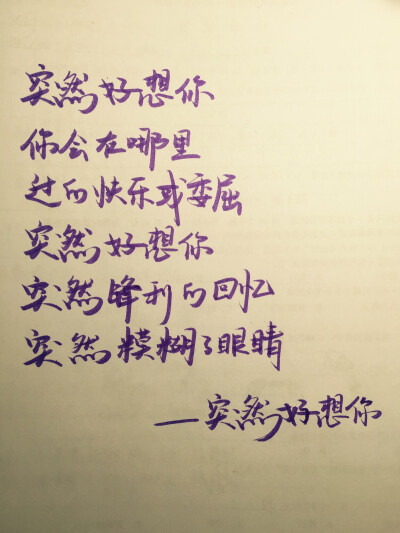 突然好想你
你会在哪里
过的快乐或委屈
突然好想你
突然锋利的回忆
突然模糊了眼睛
——突然好想你